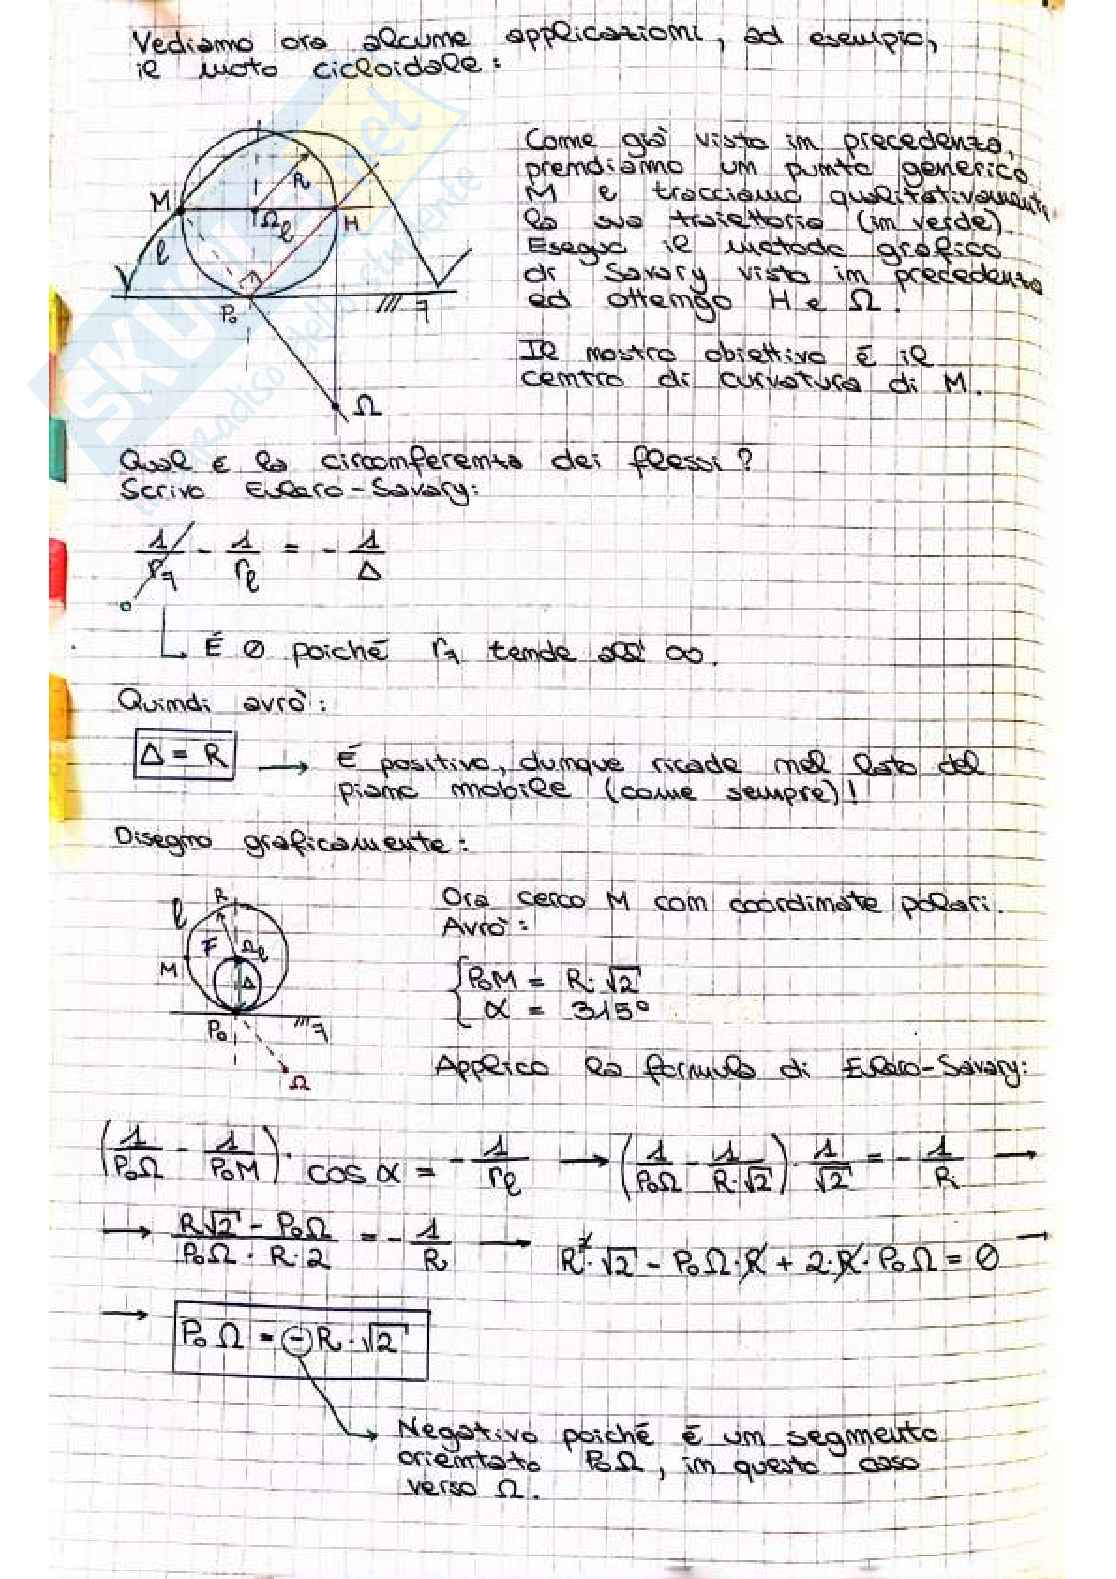 Vediamo ora alcune applicazioni, ad esempio,
il moto cicloidale:
M
R
Ωl
l
H
l
P₀
f
Ω
Come già visto in precedenza,
prendiamo un punto generico
M e tracciamo qualitativamente
la sua traiettoria (in verde).
Eseguo il metodo grafico
di Savary visto in precedenza
ed ottengo H e Ω.
Il nostro obiettivo è il
centro di curvatura di M.
Qual è la circonferenza dei flessi?
Scrivo Eulero-Savary:
1/rf - 1/rl = - 1/Δ
0
È 0 poiché rf tende all' ∞.
Quindi avrò:
Δ = R → È positivo, dunque ricade nel lato del
piano mobile (come sempre)!
Disegno graficamente:
R
l
F Ωl
M
Δ
P₀
f
Ω
Ora cerco M con coordinate polari.
Avrò:
{ P₀M = R·√2
α = 315°
Applico la formula di Eulero-Savary:
(1/P₀Ω - 1/P₀M)· cos α = - 1/rl → (1/P₀Ω - 1/R·√2)· 1/√2 = - 1/R →
→ R√2 - P₀Ω / P₀Ω · R · 2 = - 1/R → R²·√2 - P₀Ω·R + 2·R·P₀Ω = 0 →
→ P₀Ω = - R·√2
Negativo poiché è un segmento
orientato P₀Ω, in questo caso
verso Ω.
SKUOLA.net